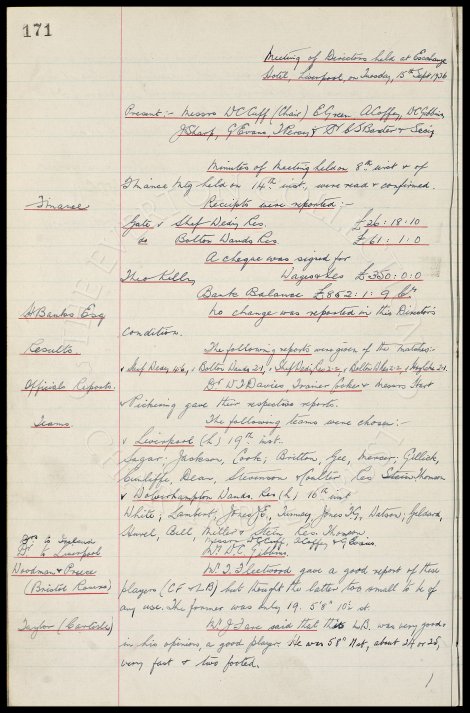 171
Meeting of Directors held at Exchange
Hotel, Liverpool, on Tuesday, 15th Sept 1936
Present:- Messrs W.C. Cuff (Chair) E Green A Coffey, D.C. Gibbins
J Sharp, G Evans, & Dr C S Baxter & Secy
Minutes of Meeting held on 8th inst & of
Finance Mtg held on 14th inst. were read & confirmed.
Finance Receipts were reported:-
Gate v Shef Wedy Res. £26:18:10
do Bolton Wands Res £61:1:0
A cheque was signed for
Theo Kelly Wages & Res £350:0:0
Bank Balance £882:1:9 Cr
H Banks Esq No change was reported in this Director's
condition.
Results. The following reports were given of the matches:-
v Shef Wedy 4-6, v Bolton Wands 2-1, v Shef Wedy Res 2-2, v Bolton Res 2-2, v
Officials Reports. Dr W J Davies, Trainer Cooke & Messrs
& Pickering gave their respective reports.
Teams. The following teams were chosen:-
v Liverpool (L) 19th inst.
Sagar; Jackson, Cook; Britton, Gee, Mercer; Gillick,
Cunliffe, Dean, Stevenson & Coulter. Res Thomson
v Wolverhampton Wands. Res (L) 16th inst
White; Lambert, Jones J.E., Kinney, Jones T.G., Watson; Geldard,
Hurel, Bell, Miller & Stein. Res. Thomson
Drs to England Messrs W.C. Cuff, A Coffey, & G Evans.
Dr to Liverpool Mr D.C. Gibbins.
Woodman & Preece Mr J Fleetwood gave a good report of these
(Bristol Rovers) players (CF & LB) but thought the latter too small to be of
any use. The former was only 19. 5'8" 10½ st.
Taylor (Carlisle) Mr J Fare said that this L.B. was very good
in his opinion, a good player. He was 5'8" 11 st, about 24 or 25,
very fast & two footed.